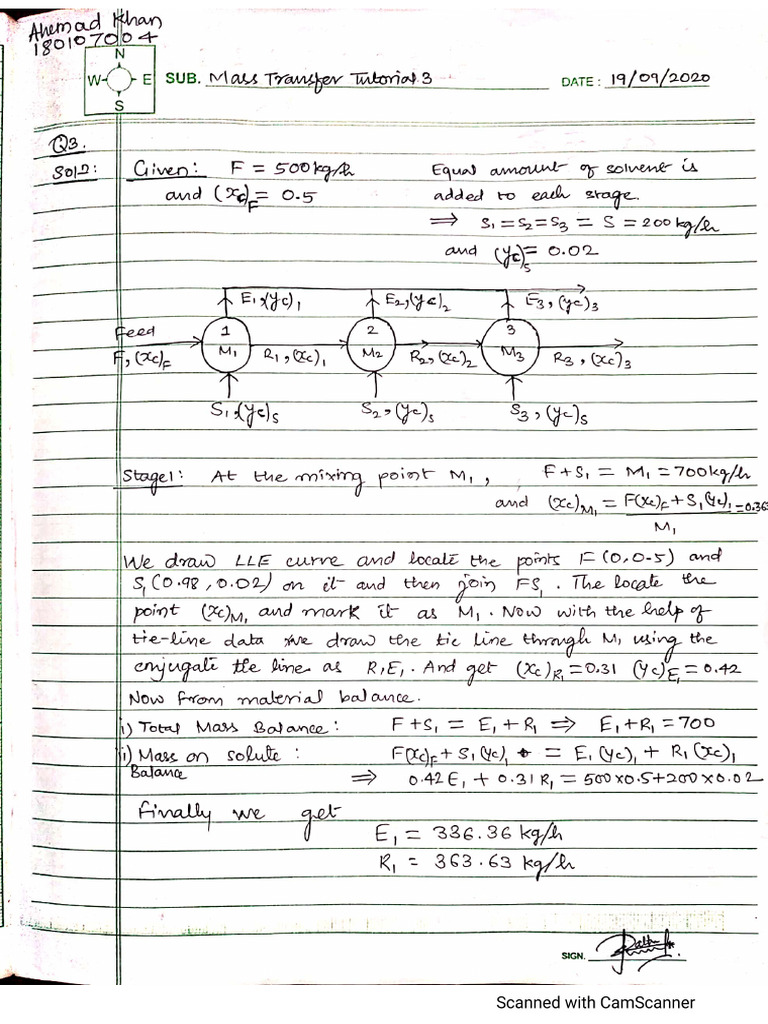 Ahemad Khan
180107004
N
W E
S
SUB. Mass Transfer Tutorial 3
DATE: 19/09/2020
Q3.
Soln: Given: F = 500 kg/h
and (xc)F = 0.5
Equal amount of solvent is
added to each stage.
⇒ S1 = S2 = S3 = S = 200 kg/h
and (yc)S = 0.02
E1,(yc)1 E2,(yc)2 E3,(yc)3
Feed 1 2 3
F,(xc)F M1 R1,(xc)1 M2 R2,(xc)2 M3 R3,(xc)3
S1,(yc)S S2,(yc)S S3,(yc)S
Stage1: At the mixing point M1, F+S1 = M1 = 700 kg/h
and (xc)M1 = F(xc)F + S1(yc)1 = 0.363
M1
We draw LLE curve and locate the points F(0,0.5) and
S1(0.98,0.02) on it and then join FS1. The locate the
point (xc)M1 and mark it as M1. Now with the help of
tie-line data we draw the tie line through M1 using the
conjugate tle line as R1E1. And get (xc)R1 = 0.31 (yc)E1 = 0.42
Now from material balance.
i) Total Mass Balance: F+S1 = E1+R1 ⇒ E1+R1 = 700
ii) Mass on solute: F(xc)F + S1(yc)1 = E1(yc)1 + R1(xc)1
Balance ⇒ 0.42E1 + 0.31R1 = 500×0.5+200×0.02
Finally we get
E1 = 336.36 kg/h
R1 = 363.63 kg/h
SIGN.
Scanned with CamScanner